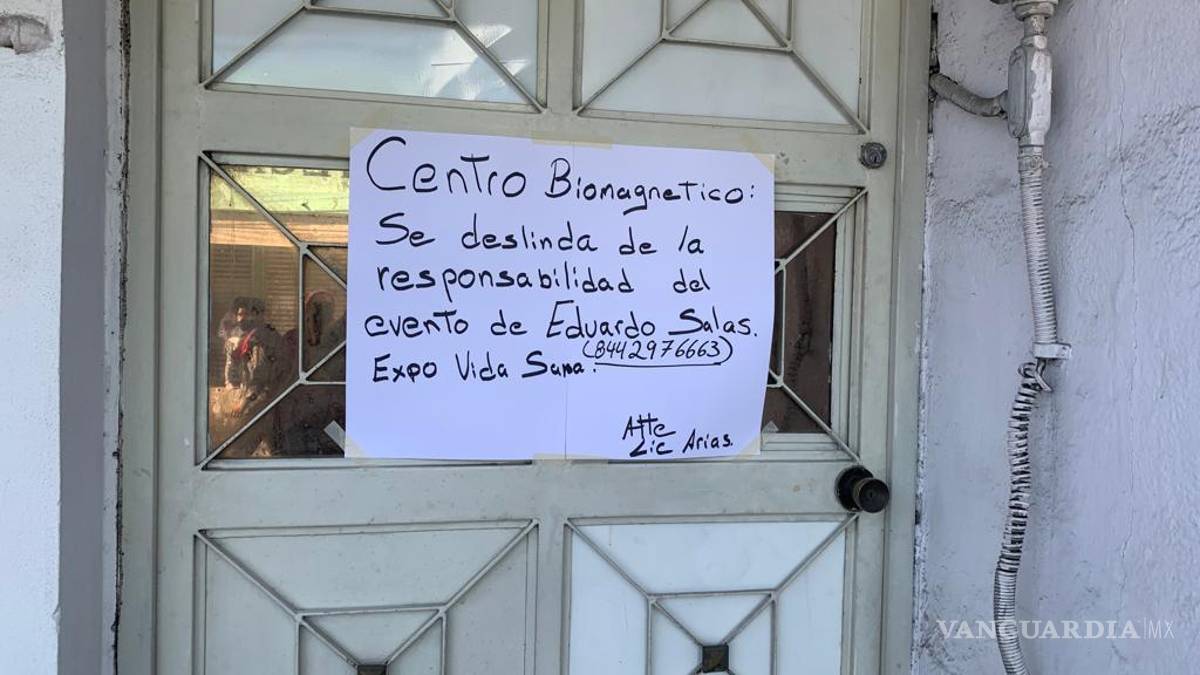 Centro Biomagnetico:
Se deslinda de la
responsabilidad del
evento de Eduardo Salas.
(8442976663)
Expo Vida Sana.
Atte
Lic Arias.
VANGUARDIA|MX